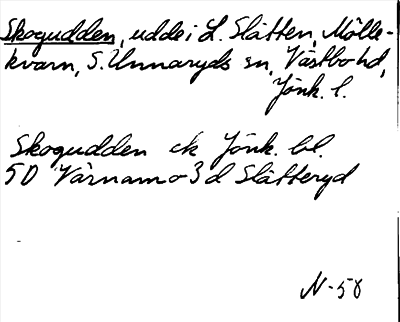 Skogudden, udde i L. Slätten, Mölle-
kvarn, S. Unnaryds sn, Västbo hd,
Jönk. l.
Skogudden ek Jönk. bl.
5D Värnamo 3d Slätteryd
N-58